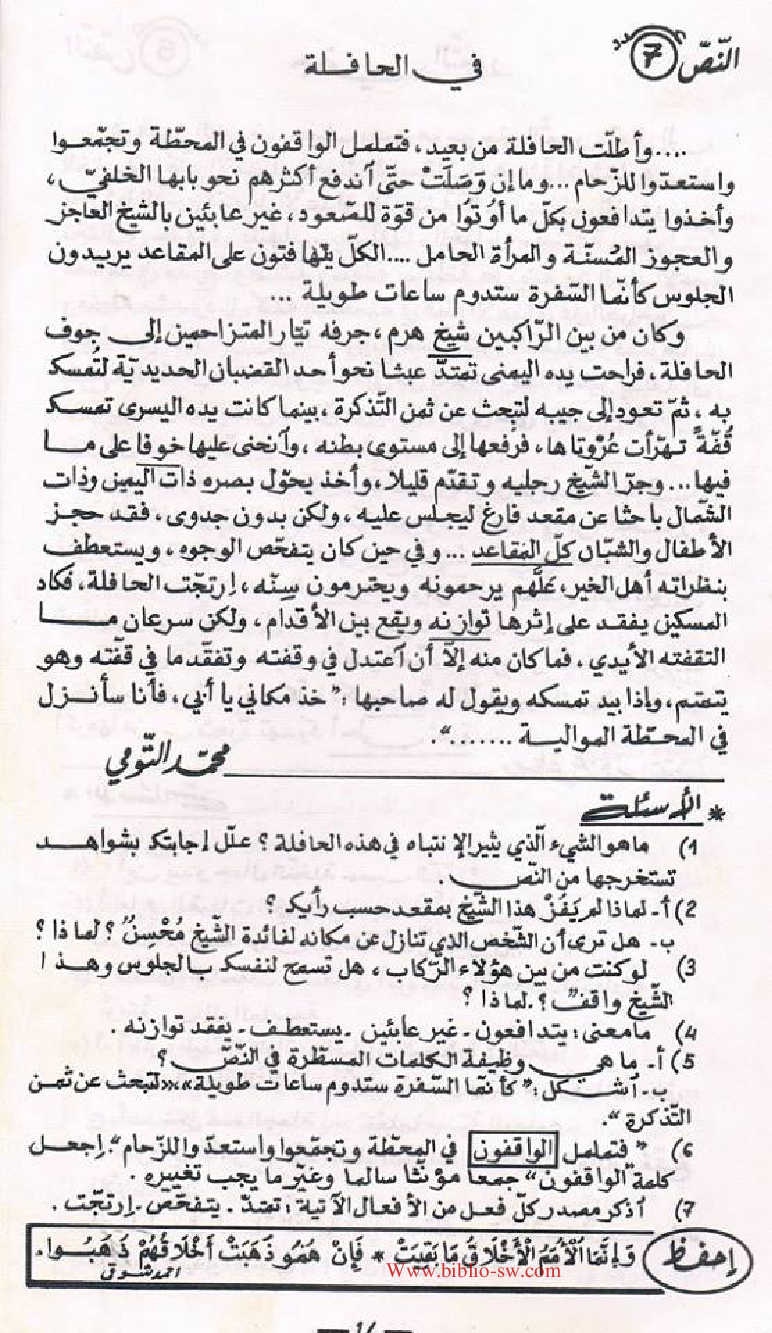 النّصّ 7
في الحافلة
....وأطلّت الحافلة من بعيد، فتململ الواقفون في المحطّة وتجمّعوا
واستعدّوا للزّحام ...وما إن وَصَلَتْ حتّى آندفع أكثرهم نحو بابها الخلفيّ،
وأخذوا يتدافعون بكلّ ما أوتُوا من قوّة للصّعود، غير عابئين بالشّيخ العاجز
والعجوز المُسنّة والمرأة الحامل ....الكلّ يتهافتون على المقاعد يريدون
الجلوس كأنّما السّفرة ستدوم ساعات طويلة ...
وكان من بين الرّاكبين شيخ هرم، جرفه تيّار المتزاحمين إلى جوف
الحافلة، فراحت يده اليمنى تمتدّ عبثا نحو أحد القضبان الحديديّة لتُمسك
به، ثمّ تعود إلى جيبه لتبحث عن ثمن التّذكرة، بينما كانت يده اليسرى تمسك
قُفّةً تهرّأت عُرْوتاها، فرفعها إلى مستوى بطنه، وآنحنى عليها خوفا على ما
فيها... وجرّ الشّيخ رجليه وتقدّم قليلا، وأخذ يحوّل بصره ذات اليمين وذات
الشّمال باحثا عن مقعد فارغ ليجلس عليه، ولكن بدون جدوى، فقد حجز
الأطفال والشبّان كلّ المقاعد ...وفي حين كان يتفحّص الوجوه، ويستعطف
بنظراته أهل الخير، علّهم يرحمونه ويحترمون سِنّه، إرتجّت الحافلة، فكاد
المسكين يفقد على إثرها توازنه ويقع بين الأقدام، ولكن سرعان ما
التقفته الأيدي، فما كان منه إلاّ أن آعتدل في وقفته وتفقّد ما في قفّته وهو
يتمتم، وإذا بيد تمسكه ويقول له صاحبها :" خذ مكاني يا أبي، فأنا سأنزل
في المحطّة الموالية .......".
محمّد التّومي
* الأسئلة
1) ما هو الشيء الّذي يثير الإنتباه في هذه الحافلة ؟ علّل إجابتك بشواهد
تستخرجها من النّص .
2) أ- لماذا لم يَفُزْ هذا الشّيخ بمقعد حسب رأيك ؟
ب- هل ترى أن الشّخص الذي تنازل عن مكانه لفائدة الشّيخ مُحْسِنٌ ؟ لماذا ؟
3) لو كنت من بين هؤلاء الرّكاب، هل تسمح لنفسك بالجلوس وهذا
الشّيخ واقف ؟ . لماذا ؟
4) ما معنى : يتدافعون - غير عابئين - يستعطف - يفقد توازنه .
5) أ- ما هي وظيفة الكلمات المسطّرة في النّصّ ؟
ب- آشكل : "كأنّما السّفرة ستدوم ساعات طويلة" "لتبحث عن ثمن
التّذكرة ".
6) " فتململ الواقفون في المحطّة وتجمّعوا واستعدّوا للزّحام". إجعل
كلمة "الواقفون" جمعا مؤنّثا سالما وغيّر ما يجب تغييره .
7) أذكر مصدر كلّ فعل من الأفعال الآتية : تمتدّ . يتفحّص . إرتجّت .
إحفظ
وَإِنَّمَا الْأُمَمُ الْأَخْلَاقُ مَا بَقِيَتْ * فَإِنْ هُمُو ذَهَبَتْ أَخْلَاقُهُمْ ذَهَبُوا.
احمد شوقي
www.biblio-sw.com